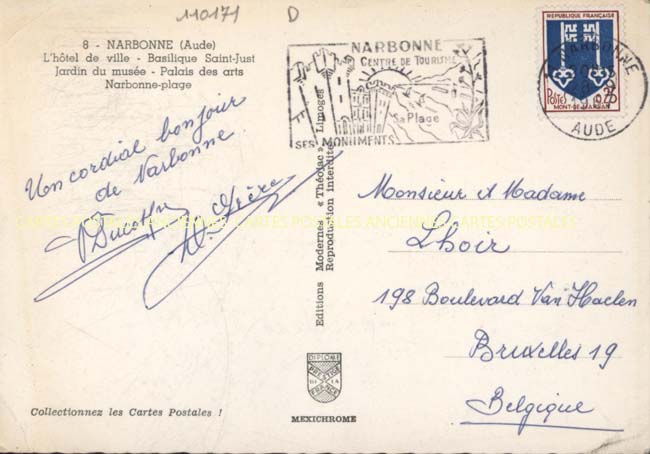 110171 D
8 - NARBONNE (Aude)
L'hôtel de ville - Basilique Saint-Just
Jardin du musée - Palais des arts
Narbonne-plage
NARBONNE
CENTRE DE TOURISME
SES MONUMENTS
Sa Plage
REPUBLIQUE FRANÇAISE
POSTES 0,25
MONT-DE-MARSAN
NARBONNE
AUDE
Un cordial bonjour
de Narbonne.
Editions Modernes « Théojac » Limoges
Reproduction interdite
Monsieur et Madame
Lhoir
198 Boulevard Van Haelen
Bruxelles 19
Belgique
CARTES POSTALES ANCIENNES CARTES POSTALES
DIPLOME
PRESTIGE
FRANCE
MEXICHROME
Collectionnez les Cartes Postales !